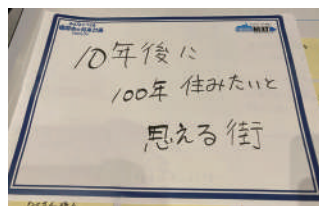 10年後に
100年 住みたいと
思える街